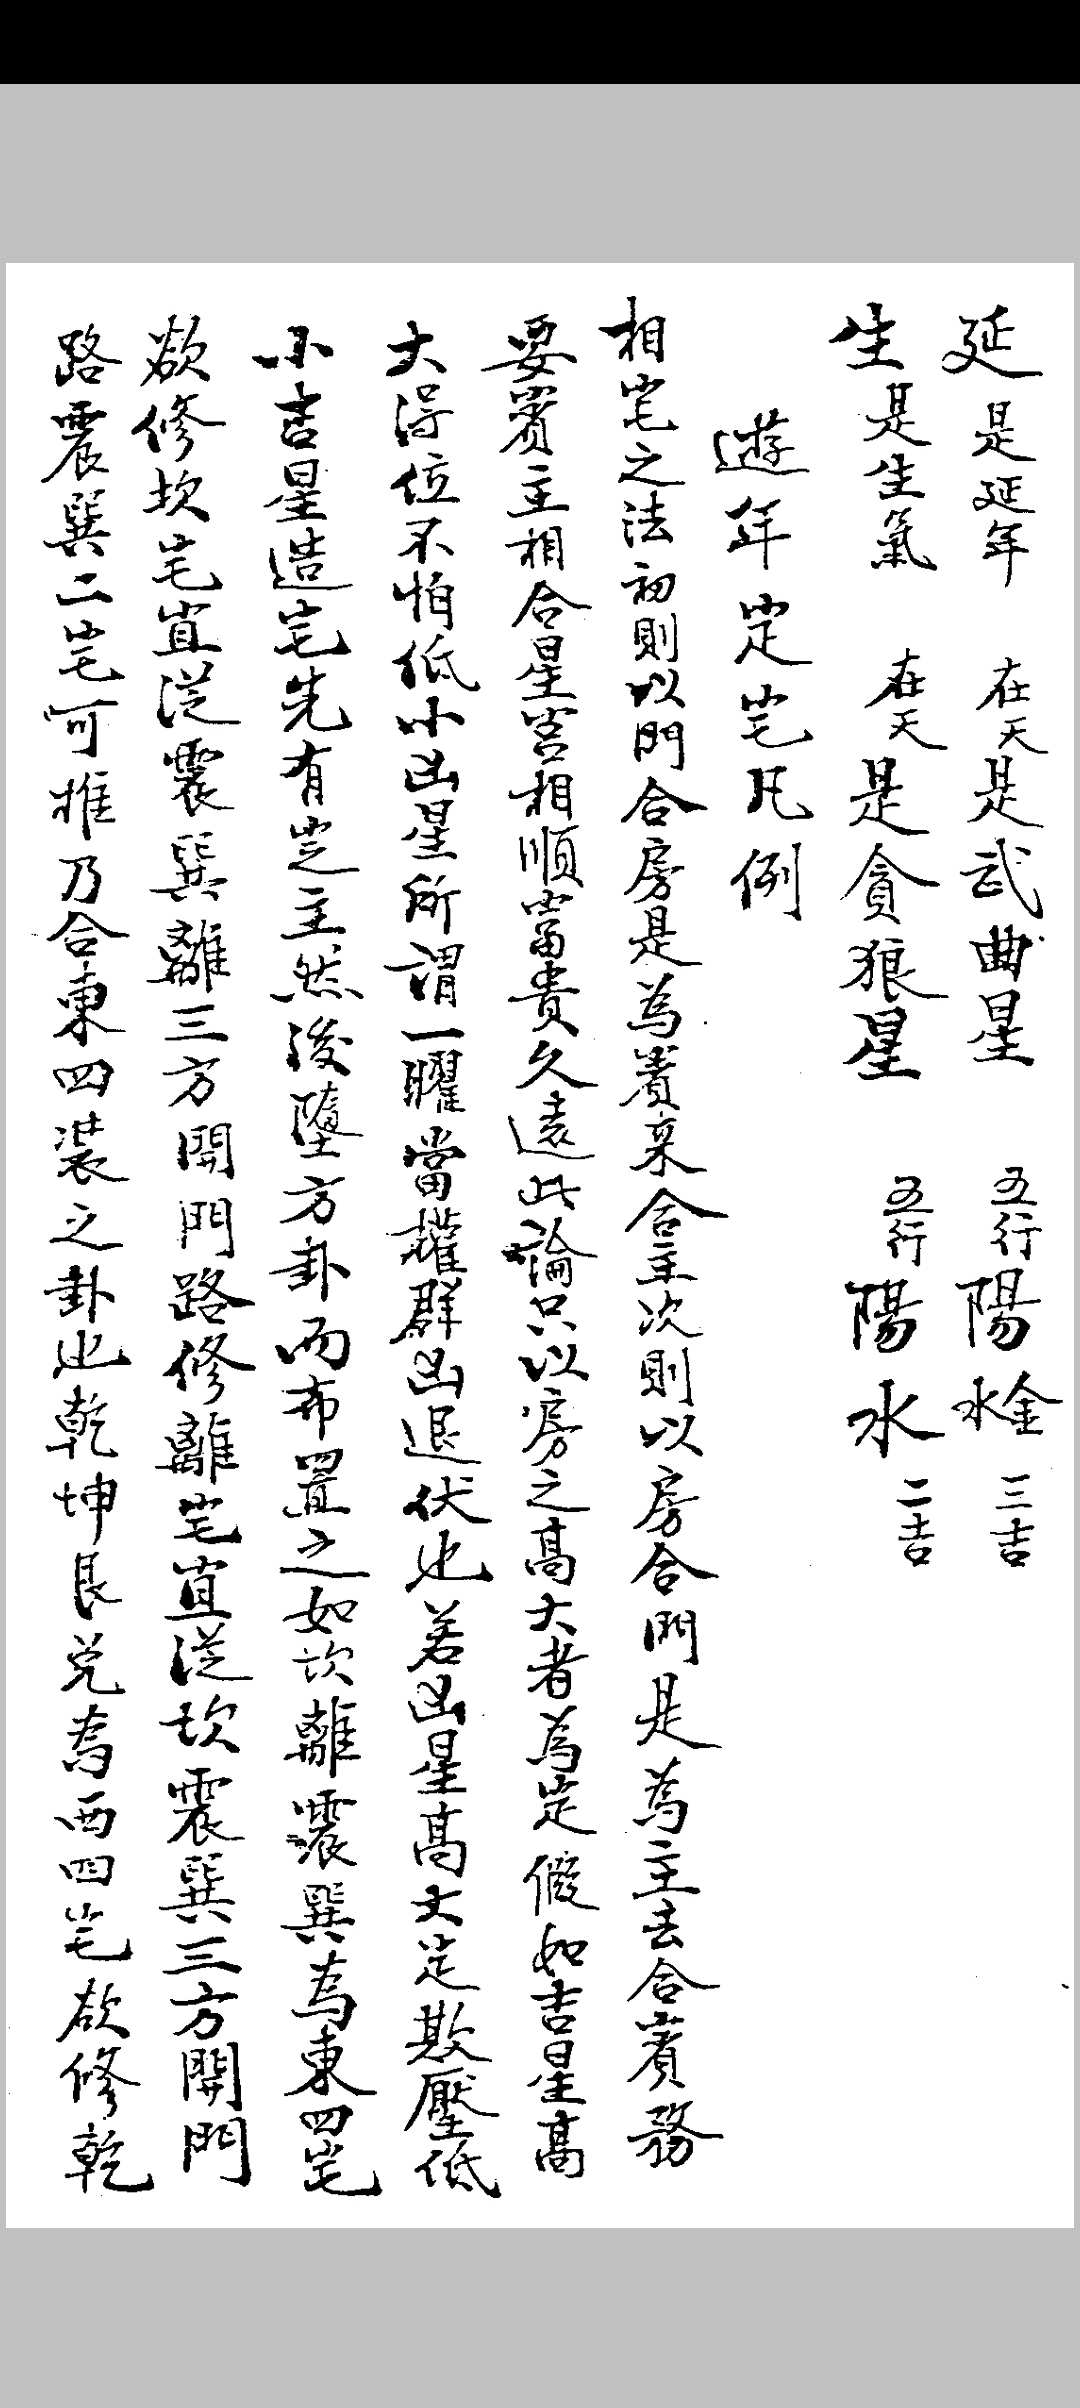 延是延年 在天是武曲星 五行陽金水 三吉
生是生氣 在天是貪狼星 五行陽水 二吉
遊年定宅凡例
相宅之法初則以門合房是為賓來合主次則以房合門是為主去合賓務
要賓主相合星宮相順富貴久遠此論只以房之高大者為定假如吉星高
大得位不怕低小凶星所謂一曜當權群凶退伏也若凶星高大定欺壓低
小吉星造宅先有定主然後墮方卦而布置之如坎離震巽為東四宅
欲修坎宅宜從震巽離三方開門路修離宅宜從坎震巽三方開門
路震巽二宅可推乃合東四裝之卦也乾坤艮兌為西四宅欲修乾